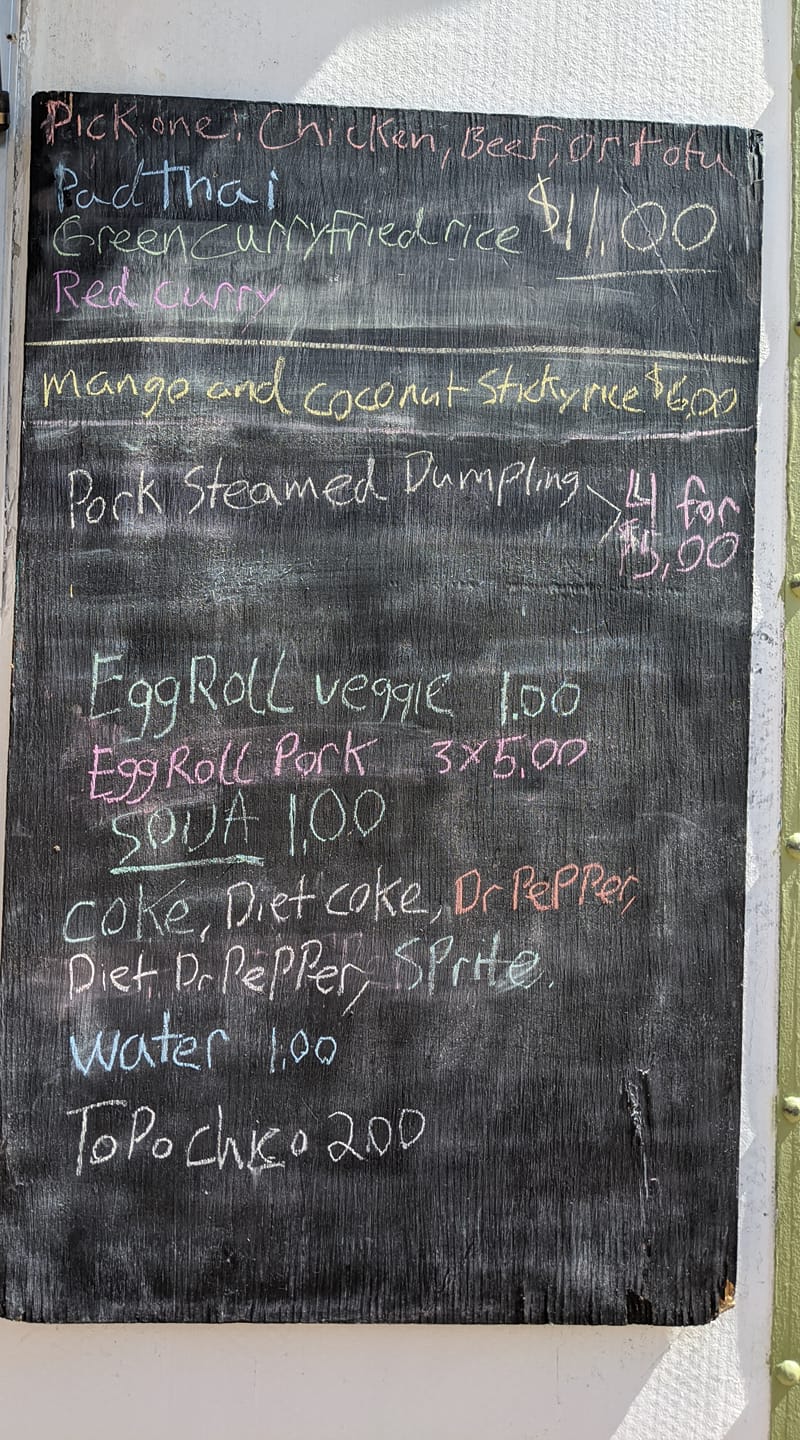 Pick one: Chicken, Beef, or tofu
Pad Thai
Green curry fried rice $11.00
Red curry
mango and coconut sticky rice $6.00
Pork Steamed Dumpling 4 for
$5.00
Egg Roll veggie 1.00
Egg Roll Pork 3x5.00
SODA 1.00
Coke, Diet coke, Dr PePPer,
Diet Dr PePPer, SPrite.
water 1.00
ToPo Chico 2.00